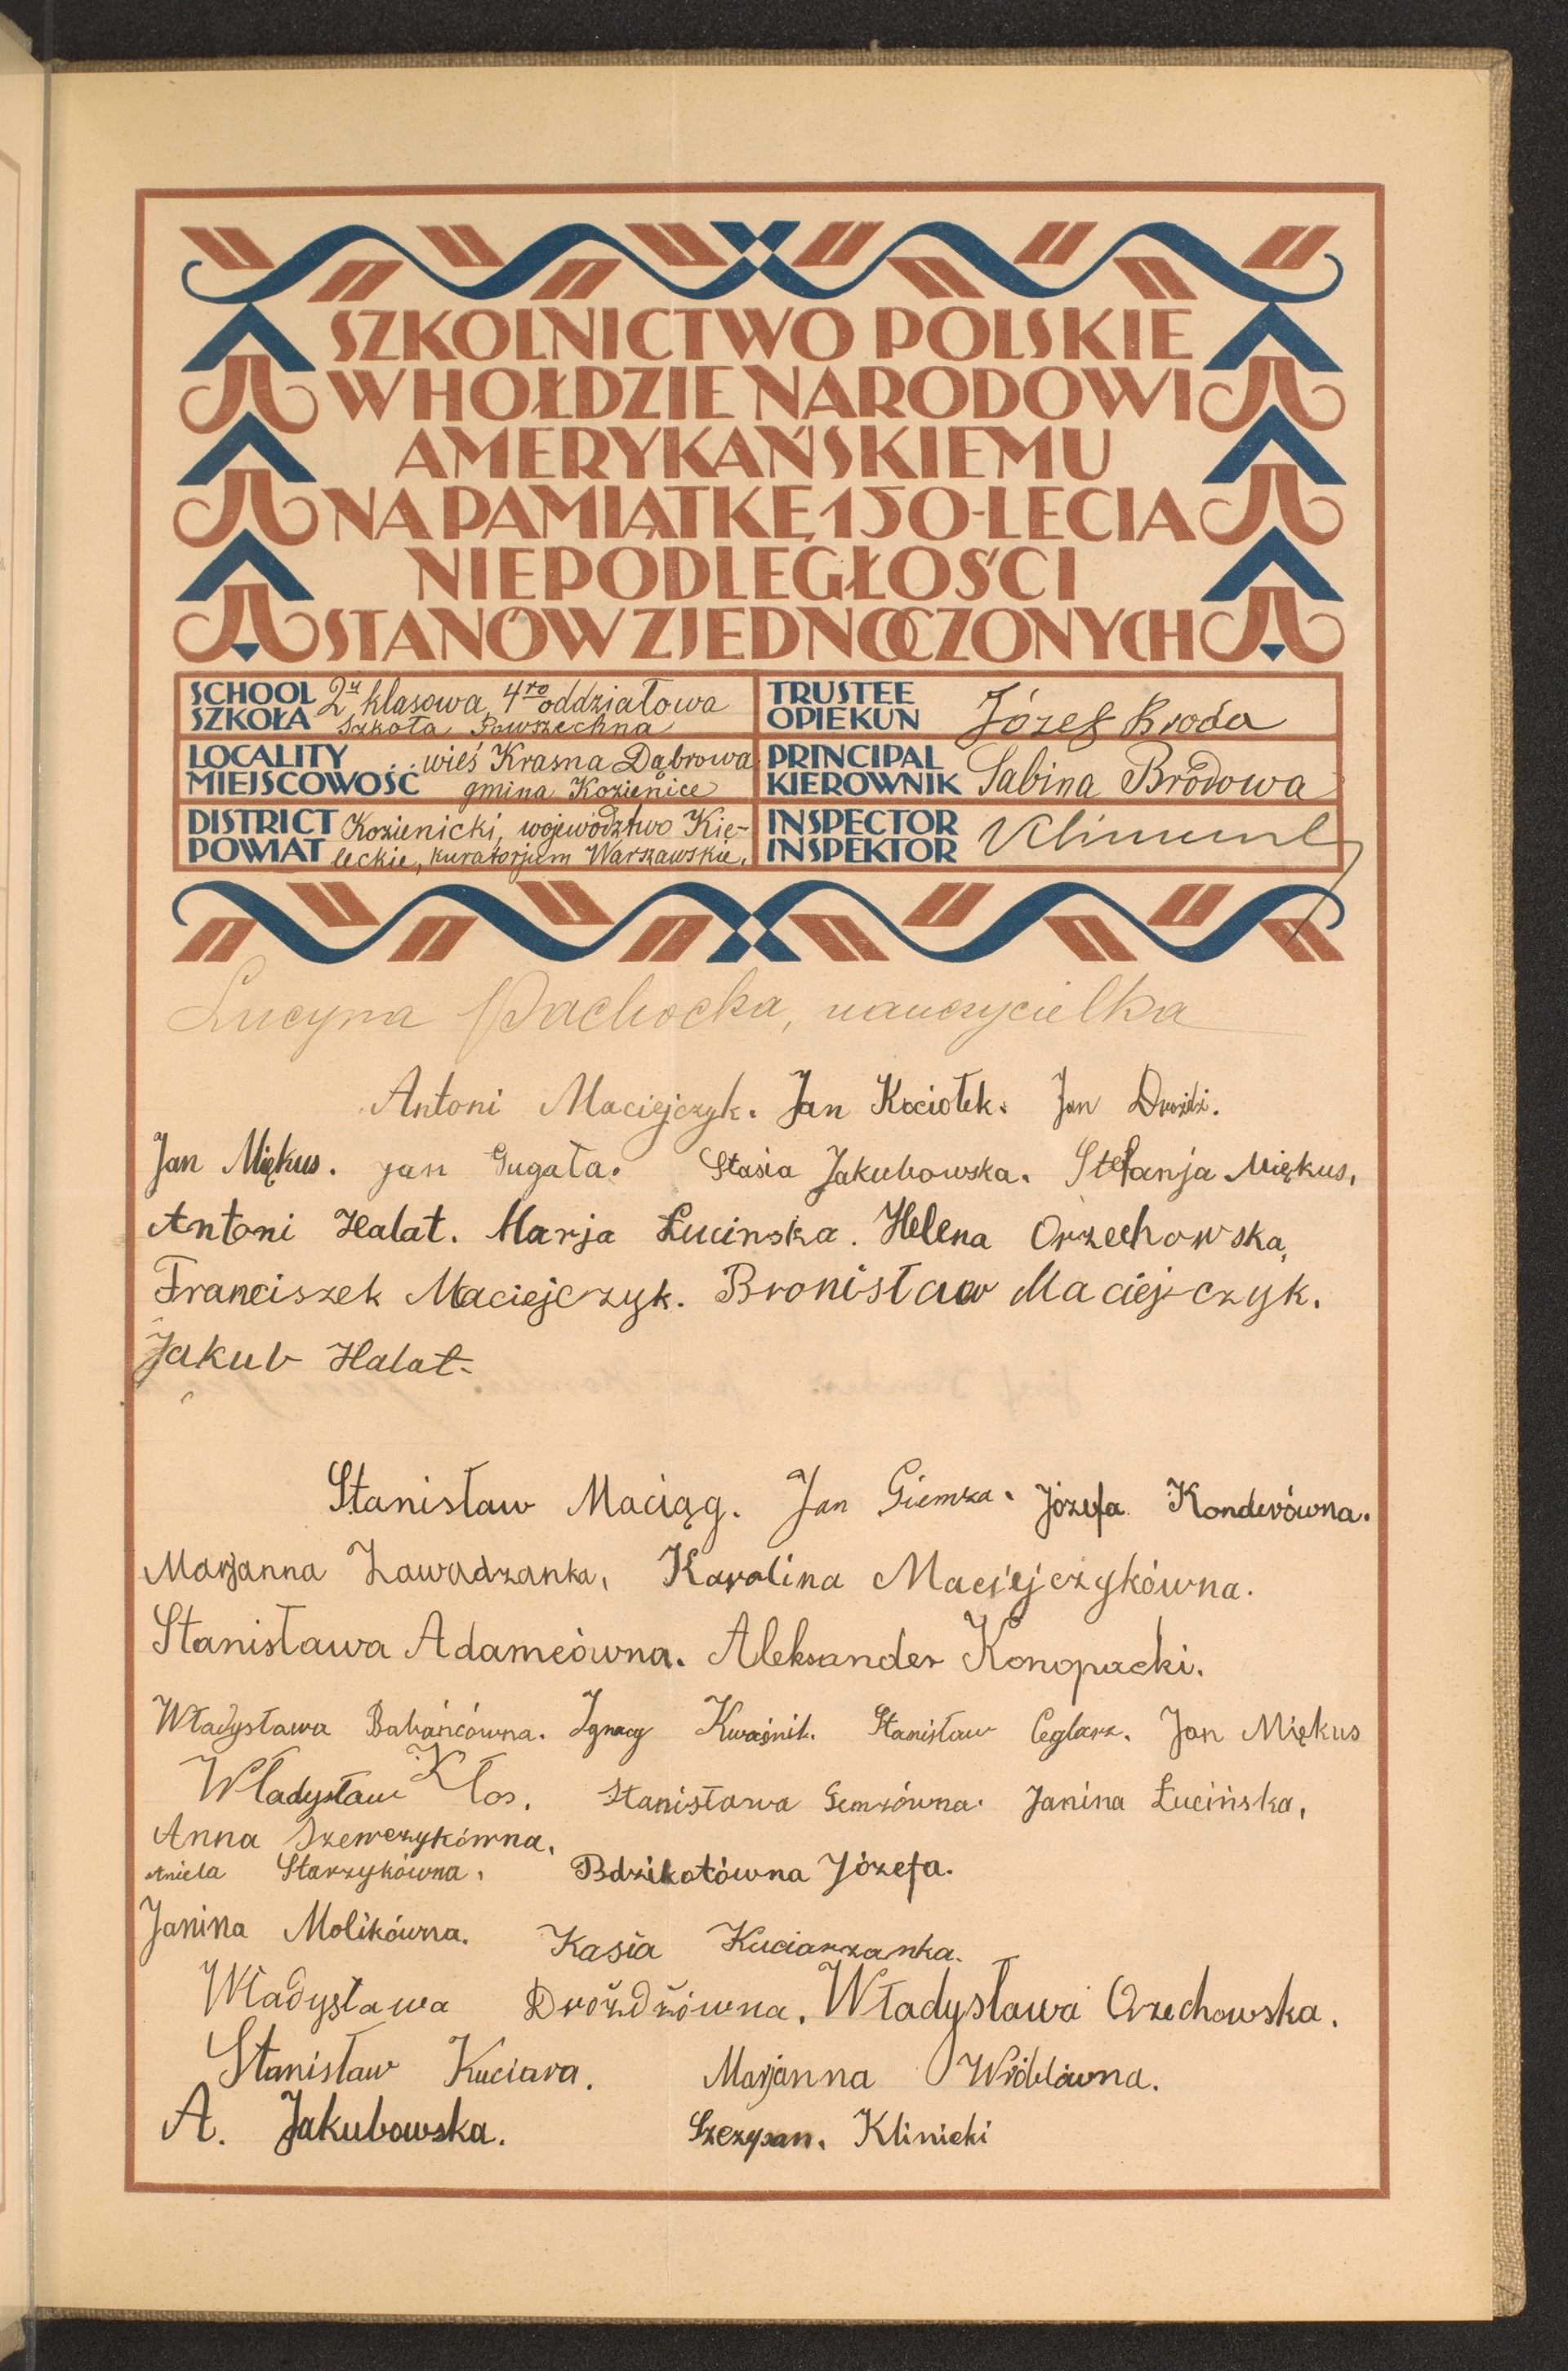 SZKOLNICTWO POLSKIE
W HOŁDZIE NARODOWI
AMERYKAŃSKIEMU
NA PAMIĄTKĘ 150-LECIA
NIEPODLEGŁOŚCI
STANÓW ZJEDNOCZONYCH
SCHOOL SZKOŁA 2u klasowa 4ro oddziałowa
Szkoła Powszechna
TRUSTEE OPIEKUN Józef Broda
LOCALITY MIEJSCOWOŚĆ wieś Krasna Dąbrowa
gmina Kozienice
PRINCIPAL KIEROWNIK Sabina Brodowa
DISTRICT POWIAT Kozienicki, województwo Kie-
leckie, kuratorjum Warszawskie.
INSPECTOR INSPEKTOR
Lucyna Pachocka, nauczycielka
Antoni Maciejczyk. Jan Kociołek. Jan Drożdż.
Jan Miękus. Jan Gugała. Stasia Jakubowska. Stefanja Miękus,
Antoni Halat. Marja Łucinska. Helena Orzechowska,
Franciszek Maciejczyk. Bronisław Maciejczyk.
Jakub Halat.
Stanisław Maciąg. Jan Giemza. Józefa Konderówna.
Marjanna Zawadzanka, Karolina Maciejczykówna.
Stanisława Adamcówna. Aleksander Konopacki.
Władysława Babańcówna. Ignacy Kwaśnik. Stanisław Ceglarz. Jan Miękus
Władysław Kłos. Stanisława Gemzówna. Janina Łucińska,
Anna Szewczykówna.
Aniela Starzykówna. Bdzikotówna Józefa.
Janina Molikówna. Kasia Kuciarzanka.
Władysława Drożdżówna. Władysława Orzechowska.
Stanisław Kuciara. Marjanna Wróblówna.
A. Jakubowska. Szczepan. Klinicki